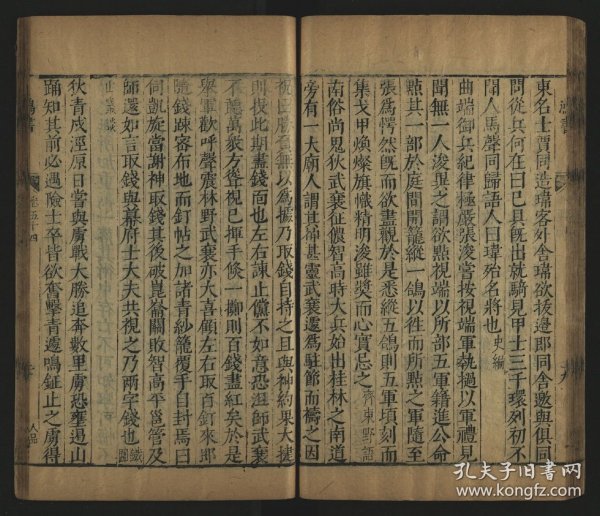 東名士賈同造瑋客外舍瑋欲按邊郡同舍邀與俱同
問從兵何在曰已具旣出就騎見甲士三千環列初不
聞人馬聲同歸語人曰瑋殆名將也 史編
曲端御兵紀律極嚴張浚嘗按視端軍執撾以軍禮見
聞無一人浚異之謂欲點視端以所部五軍籍進公命
點其一部於庭間開籠縱一鴿以徃而所點之軍隨至
張爲愕然旣而欲盡觀於是悉縱五鴿則五軍頃刻而
集戈甲煥燦旗幟精明浚雖奬而心實忌之 齊東野語
南俗尚鬼狄武襄征儂智高時大兵始出桂林之南道
旁有一大廟人謂其神甚靈武襄遽爲駐節而禱之因
祝曰勝負無以爲據乃取錢自持之且與神約果大捷
則投此期盡錢面也左右諫止儻不如意恐沮師武襄
不聽萬衆方聳視已揮手倐一擲則百錢盡紅矣於是
舉軍歡呼聲震林野武襄亦大喜顧左右取百釘來卽
隨錢疎密布地而釘帖之加諸青紗籠覆手自封焉曰
伺凱旋當謝神取錢其後破崑崙關敗智高平邕管及
師還如言取錢與幕府士大夫共視之乃兩字錢也 鐵圍
山叢談
狄青戍涇原日嘗與虜戰大勝追奔數里虜恐壅遏山
踊知其前必遇險士卒皆欲奮擊青遽鳴鉦止之虜得
卷五十四
孔夫子旧书网
www.kongfz.com